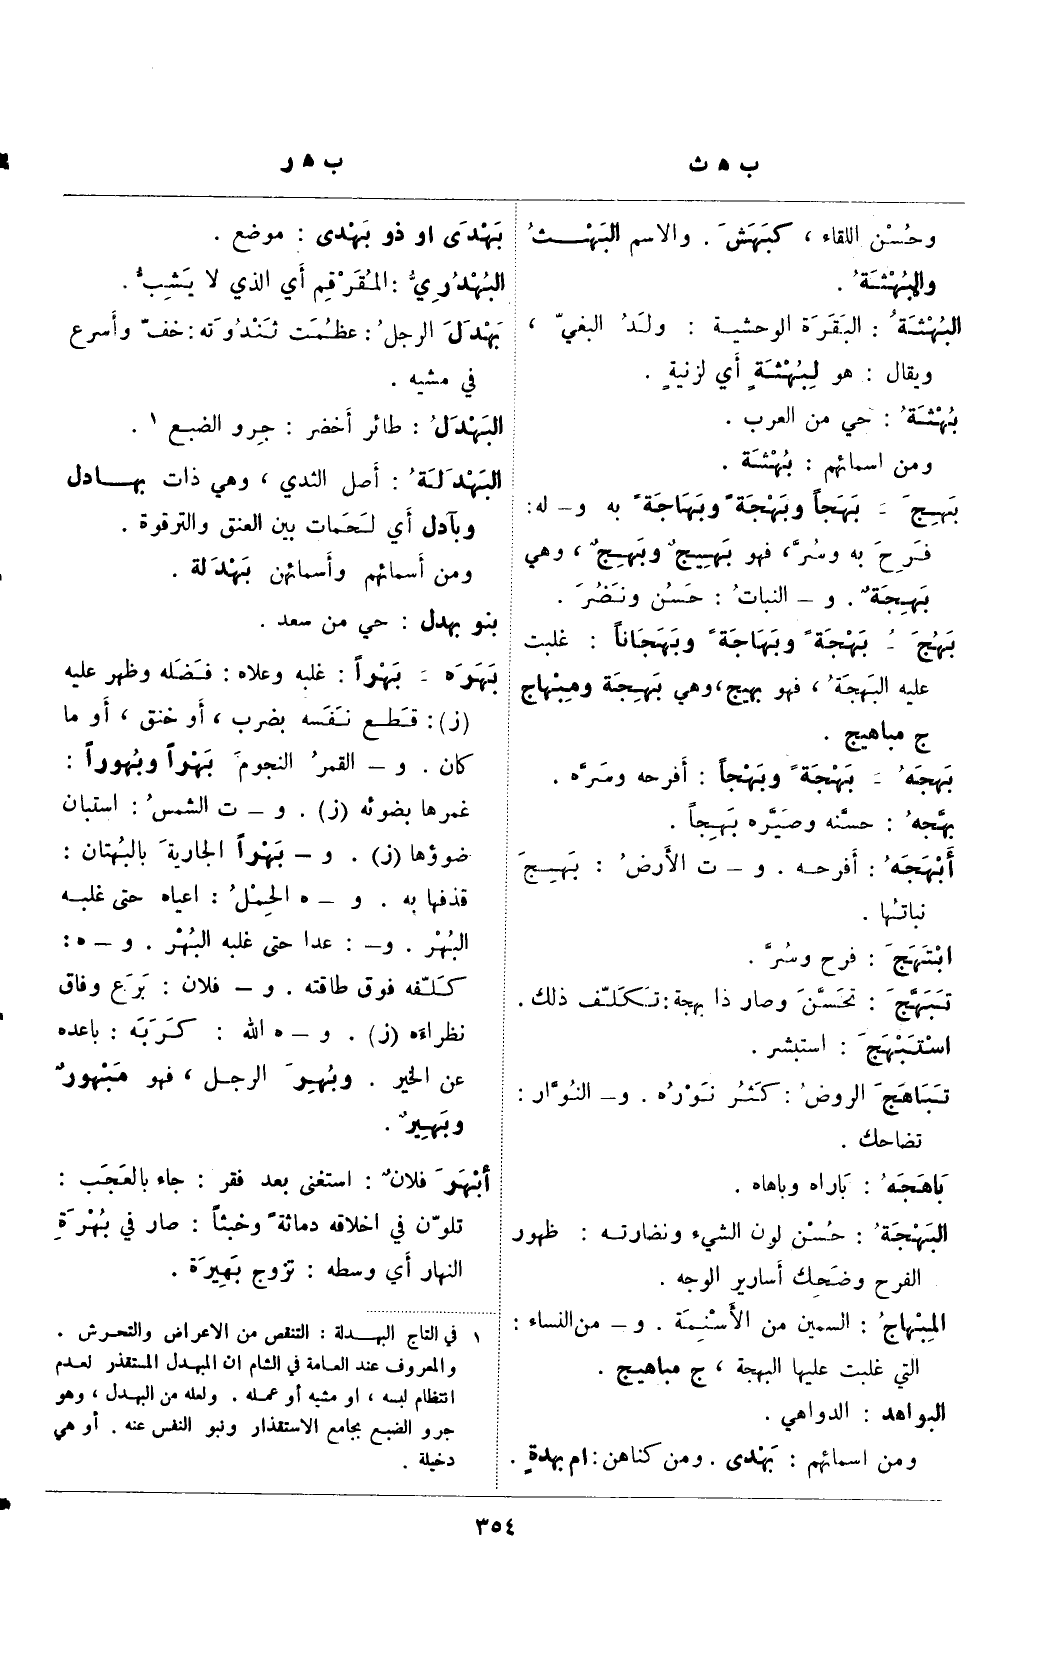 ب ه ث
ب ه ر
وحُسْن اللقاء ، كبَهَشَ . والاسم البَهْثُ
والبُهْثَةُ .
البُهْثَةُ : البَقَرَة الوحشية : ولَدُ البغيّ ،
ويقال : هو لِبُهْثَةٍ أي لزنيةٍ .
بُهْثَةُ : حي من العرب .
ومن اسمائهم : بُهْثَة .
بَهِجَ َ بَهَجاً وبَهْجَةً وبَهَاجَةً به و– له:
فَرِحَ به وسُرَّ، فهو بَهِيجٌ وبَهِجٌ ، وهي
بَهِجَةٌ . و – النباتُ : حَسُن ونَضُرَ .
بَهُجَ ُ بَهْجَةً وبَهَاجَةً وبَهَجَاناً : غلبت
عليه البَهجَةُ ، فهو بهيج،وهي بَهِجَة ومِبْهاج
ج مباهيج .
بَهجَهُ َ بَهْجَةً وبَهْجاً : أفرحه وسَرَّه .
بهَّجهُ : حسَّنه وصيَّره بَهِجاً .
أَبْهَجَهُ : أفرحه . و – ت الأرضُ : بَهِجَ
نباتُها .
ابْتَهَجَ : فرح وسُرَّ .
تَبَهَّجَ : تحَسَّنَ وصار ذا بهجة:تَكَلّف ذلك.
اسْتَبْهَجَ : استبشر .
تَبَاهَجَ الروضُ : كَثُر نَوْرُه . و– النُوَّار :
تضاحك .
بَاهَجَهُ : بَاراه وباهاه .
البَهْجَةُ : حُسْن لون الشيء ونضارته : ظهور
الفرح وضَحِك أسارير الوجه .
المِبْهاجُ : السمين من الأَسْنِمَة . و – من النساء :
التي غلبت عليها البهجة ، ج مباهيج .
البواهد : الدواهي .
ومن اسمائهم : بَهْدى . ومن كناهن : ام بهدةٍ .
بَهْدَى او ذو بَهْدى : موضع .
البُهْدُرِيُّ :المُقَرْقِم أي الذي لا يَشِبُّ .
بَهْدَلَ الرجلُ : عظُمَت ثَنْدُوَته : خفّ وأسرع
في مشيه .
البَهْدَلُ : طائر أخضر : جرو الضبع ١ .
البَهْدَلَةُ : أصل الثدي ، وهي ذات بهادل
وبآدل أي لَحَمات بين العنق والترقوة .
ومن أسمائهم وأسمائهن بَهْدَلة .
بنو بهدل : حي من سعد .
بَهَرَه َ بَهْراً : غلبه وعلاه : فضَله وظهر عليه
(ز) : قَطَع نَفَسه بضرب ، أو خنق ، أو ما
كان . و – القمرُ النجومَ بَهْراً وبُهوراً :
غمرها بضوئه (ز) . و – ت الشمسُ : استبان
ضوؤها (ز) . و – بَهْراً الجاريةَ بالبُهتان :
قذفها به . و – ه الحِمْلُ : اعياه حتى غلبه
البُهْر . و– : عدا حتى غلبه البُهْر . و – ه :
كَلّفه فوق طاقته . و – فلان : بَرَع وفاق
نظراءه (ز) . و – ه الله : كَرَبَه : باعده
عن الخير . وبُهِرَ الرجل ، فهو مَبْهورٌ
وبَهِيرٌ .
أَبْهَرَ فلانٌ : استغنى بعد فقر : جاء بالعَجَب :
تلوّن في اخلاقه دماثةً وخبثاً : صار في بُهْرَةِ
النهار أي وسطه : تزوج بَهِيرَة .
١ في التاج البهدلة : التنقص من الاعراض والتحرش .
والمعروف عند العامة في الشام ان المبهدل المستقذر لعدم
انتظام لبسه ، او مشيه أو عمله . ولعله من البهدل ، وهو
جرو الضبع بجامع الاستقذار ونبو النفس عنه . أو هي
دخيلة .
٣٥٤